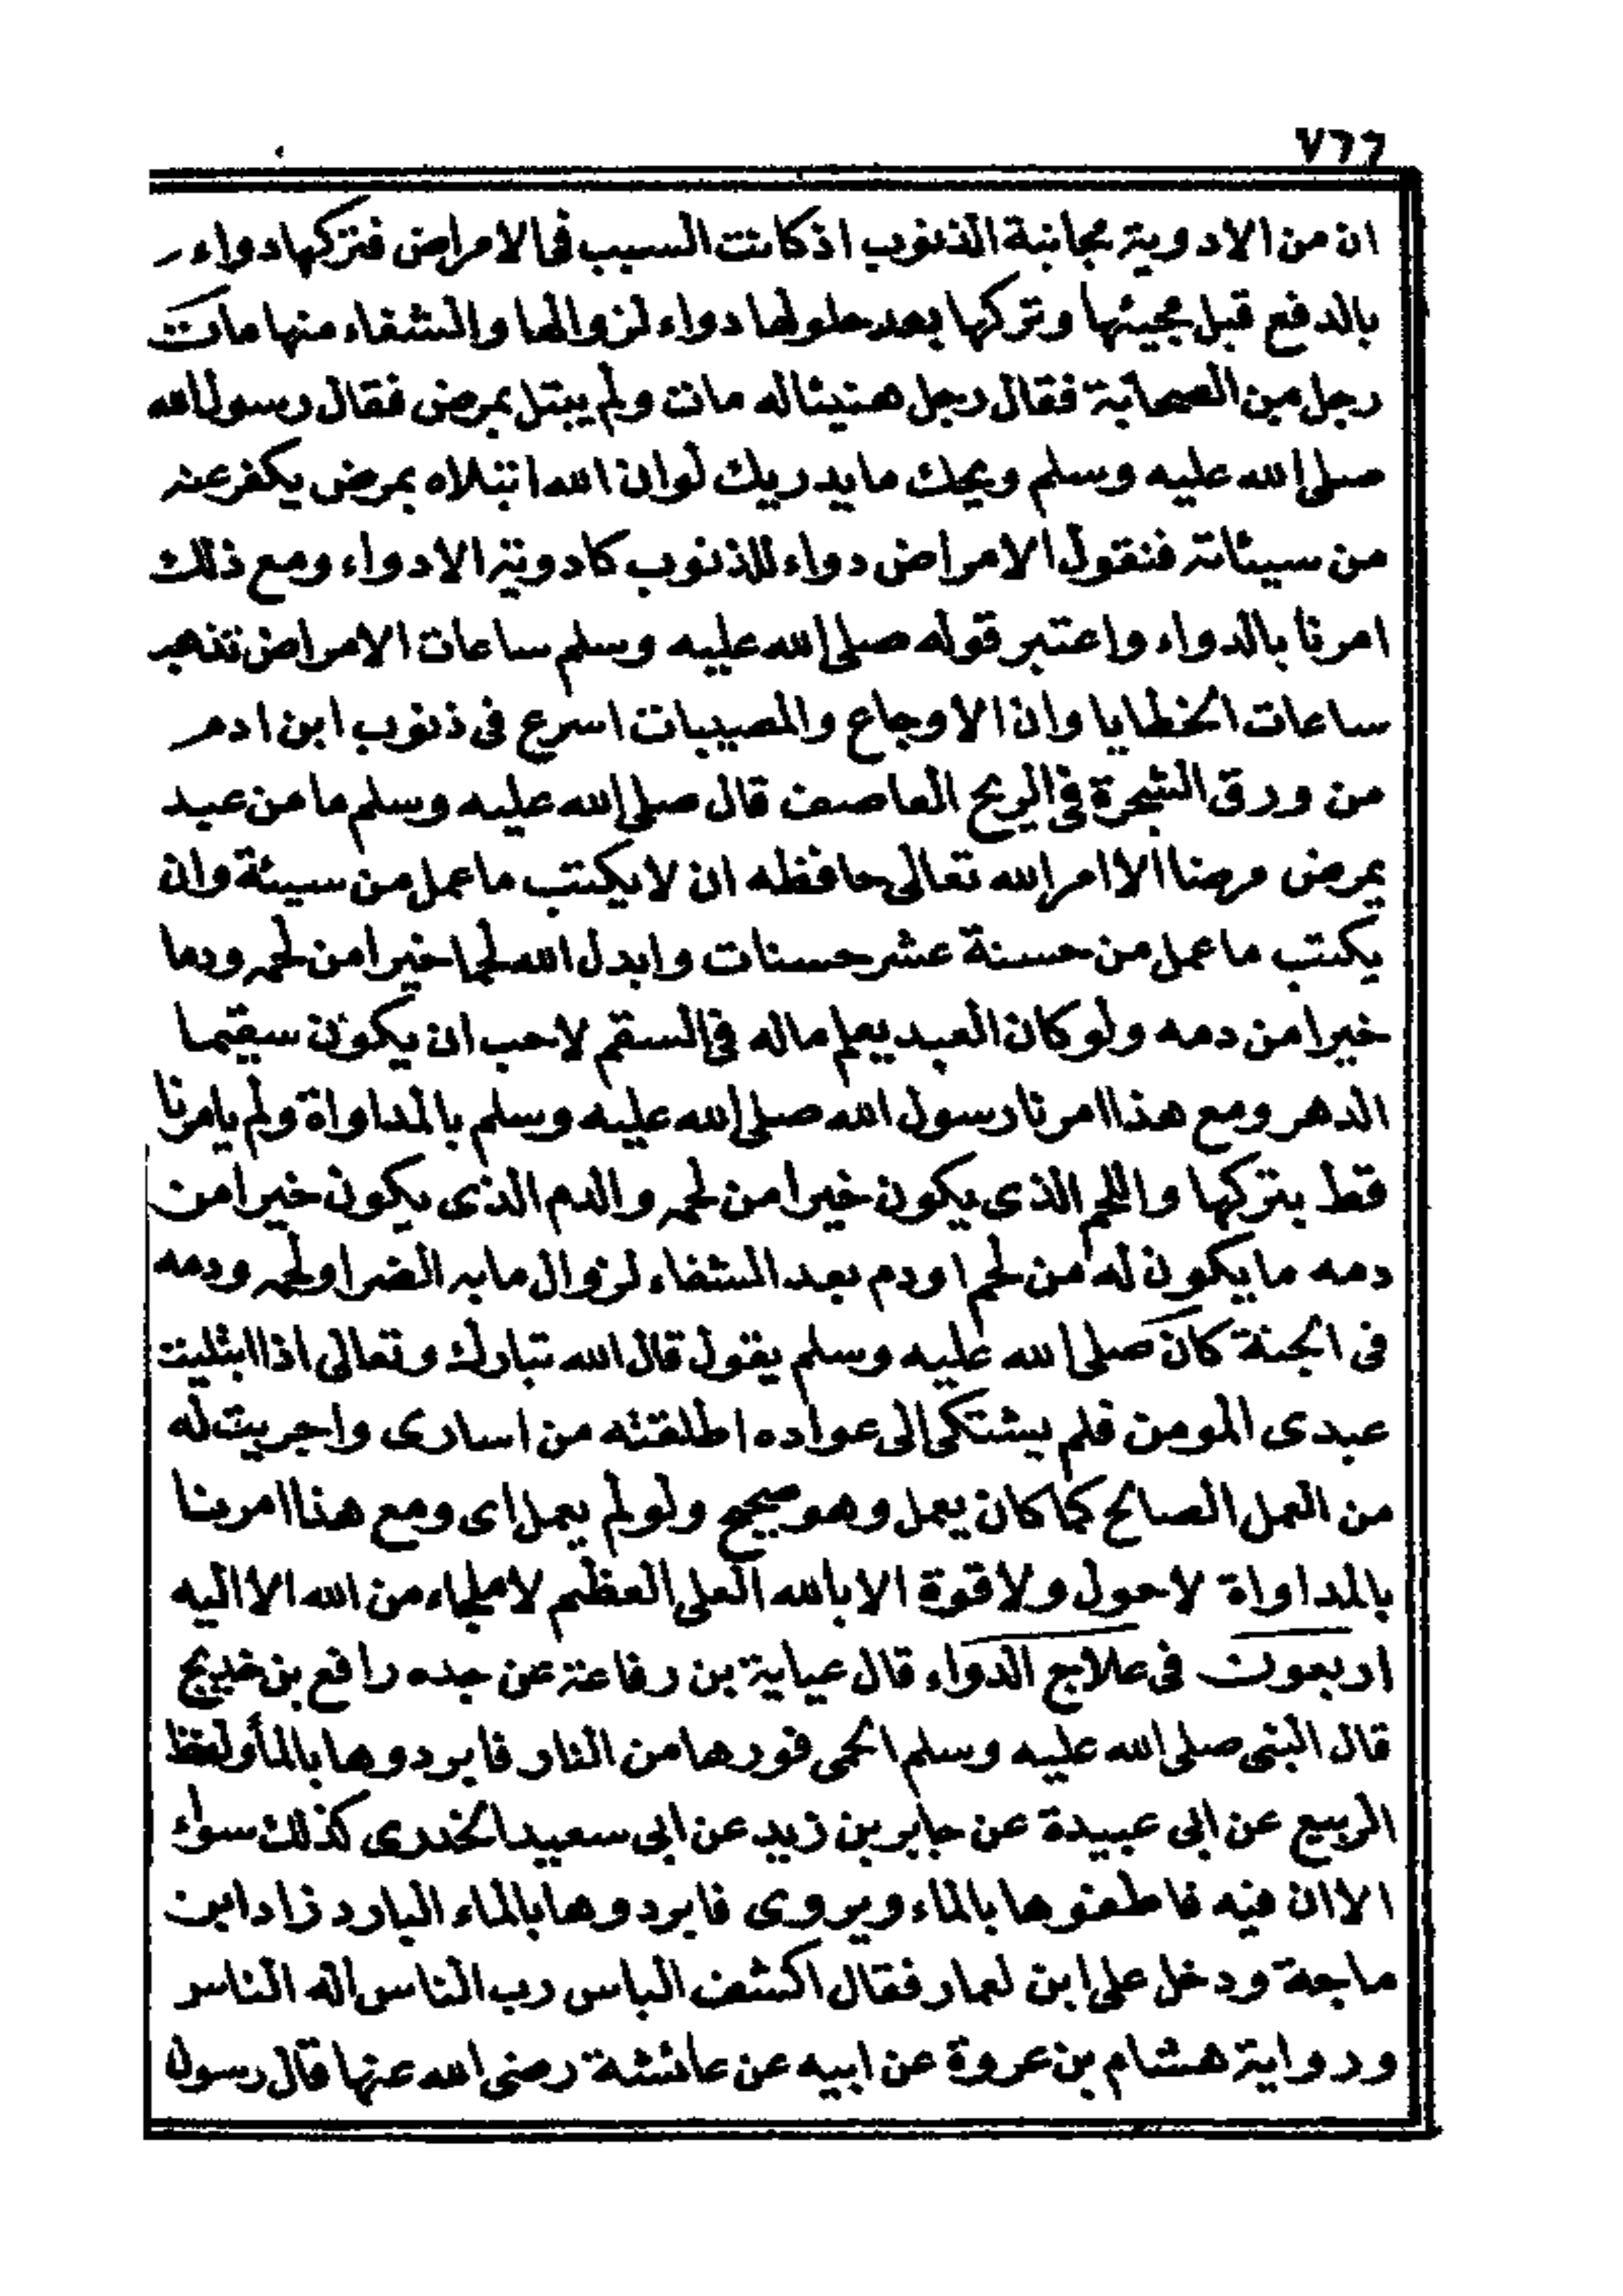 ٧٦٦
ان من الادوية مجانبة الذنوب اذ كانت السبب فى الامراض فتركها دواء
بالدفع قبل مجيئها وتركها بعد حلولها دواء لزوالها والشفاء منها مات
رجل من الصحابة فقال رجل هنيئا له مات ولم يبتل بمرض فقال رسول الله
صلى الله عليه وسلم ويحك ما يدريك لو ان الله ابتلاه بمرض يكفر عنه
من سيئاته فنقول الامراض دواء للذنوب كادوية الادواء ومع ذلك
امرنا بالدواء واعتبر قوله صلى الله عليه وسلم ساعات الامراض تذهب
ساعات الخطايا وان الاوجاع والمصيبات اسرع فى ذنوب ابن ادم
من ورق الشجرة فى الريح العاصف قال صلى الله عليه وسلم ما من عبد
يمرض مرضنا الا امر الله تعالى حافظه ان لا يكتب ما عمل من سيئة وان
يكتب ما عمل من حسنة عشر حسنات وابدل الله لحما خيرا من لحمه ودما
خيرا من دمه ولو كان العبد يعلم ما له فى السقم لاحب ان يكون سقيما
الدهر ومع هذا امرنا رسول الله صلى الله عليه وسلم بالمداواة ولم يامرنا
قط بتركها واللحم الذى يكون خيرا من لحمه والدم الذى يكون خيرا من
دمه ما يكون له من لحم او دم بعد الشفاء لزوال ما به الضر او لحمه ودمه
فى الجنة كان صلى الله عليه وسلم يقول قال الله تبارك وتعالى اذا ابتليت
عبدى المومن فلم يشتكى الى عواده اطلقته من اسارى واجريت له
من العمل الصالح كما كان يعمل وهو صحيح ولو لم يعمل اى ومع هذا امرنا
بالمداواة لا حول ولا قوة الا بالله العلى العظيم لا ملجاء من الله الا اليه
اربعون فى علاج الدواء قال عباية بن رفاعة عن جده رافع بن خديج
قال النبى صلى الله عليه وسلم الحمى فورها من النار فابردوها بالمأ ولفظ
الربيع عن ابى عبيدة عن جابر بن زيد عن ابى سعيد الخدرى كذلك سواء
الا ان فيه فاطفئوها بالماء ويروى فابردوها بالماء البارد زاد ابن
ماجة ودخل على ابن لعمار فقال اكشف الباس رب الناس اله الناس
ورواية هشام بن عروة عن ابيه عن عائشة رضى الله عنها قال رسول